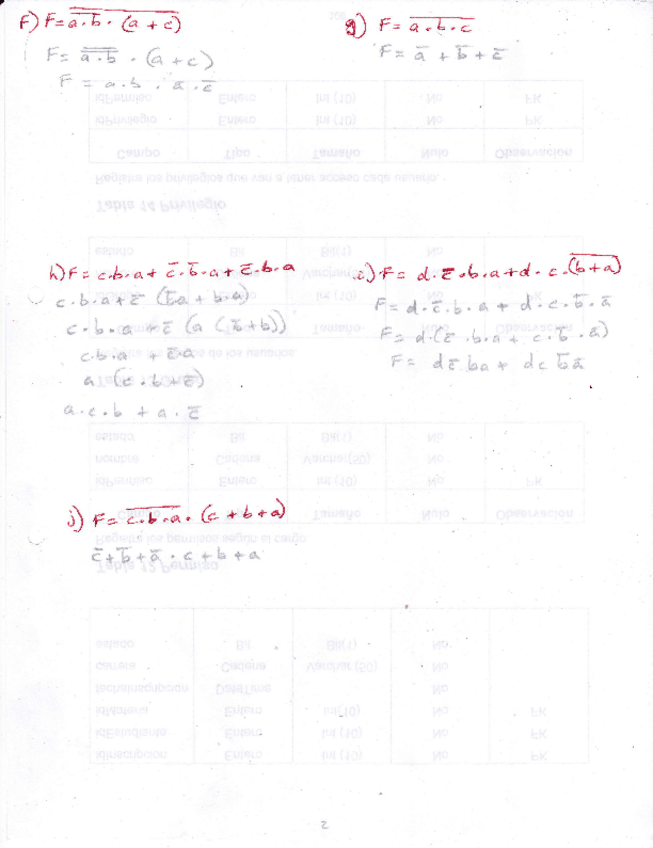 f) F = \overline{\overline{a·b} · (a + c)}
F = \overline{\overline{a·b}} · (a + c)
F = a · b · a̅ · c̅
g) F = \overline{a·b·c}
F = a̅ + b̅ + c̅
h) F = c·b·a + c̅·b̅·a + c̅·b·a
c·b·a + c̅ (b̅a + b·a)
c·b·a + c̅ (a (b̅+b))
c·b·a + c̅·a
a (c·b + c̅)
a·c·b + a·c̅
i) F = d·c̅·b·a + d·c·\overline{(b+a)}
F = d·c̅·b·a + d·c·b̅·a̅
F = d·(c̅·b·a + c·b̅·a̅)
F = dc̅ba + dc b̅a̅
j) F = \overline{c·b·a} · (c + b + a)
c̅ + b̅ + a̅ · c + b + a
2